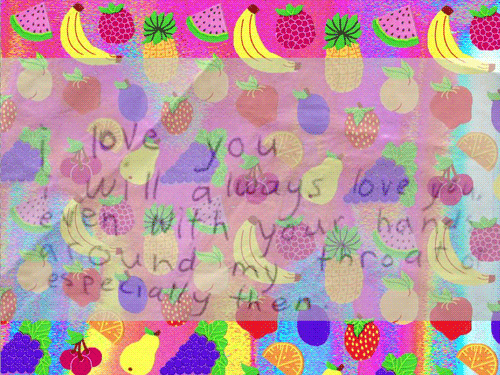 i love you
i will always love you,
even with your hands
around my throat
especially then